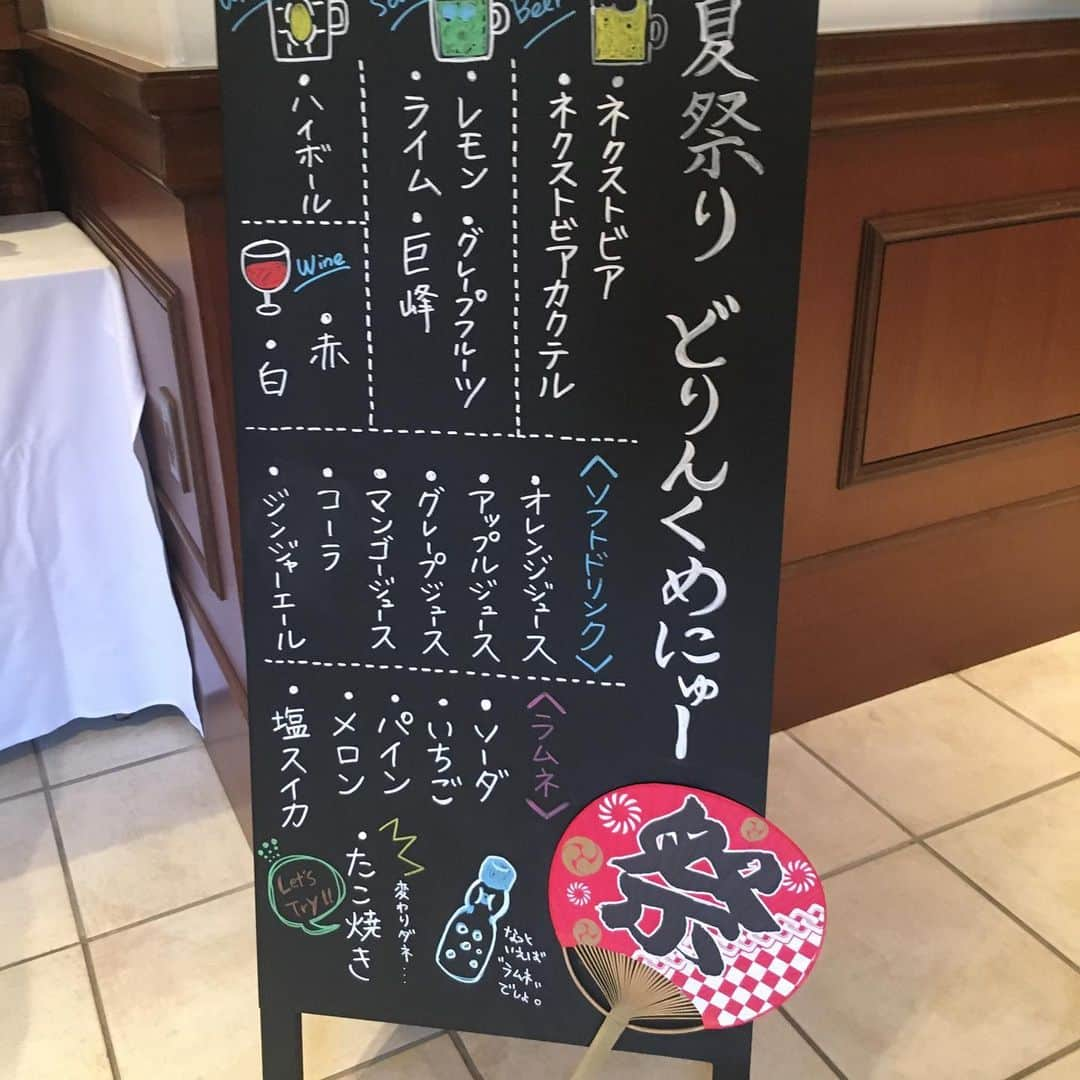 夏祭り どりんくめにゅー
Beer
・ネクストビア
・ネクストビアカクテル
・レモン ・グレープフルーツ
・ライム ・巨峰
・ハイボール
Wine
・赤
・白
〈ソフトドリンク〉
・オレンジジュース
・アップルジュース
・グレープジュース
・マンゴージュース
・コーラ
・ジンジャーエール
〈ラムネ〉
・ソーダ
・いちご
・パイン
・メロン
・塩スイカ
変わりダネ…
・たこ焼き
Let's
Try!!
なつと
いえば
"ラムネ"
でしょ。
祭